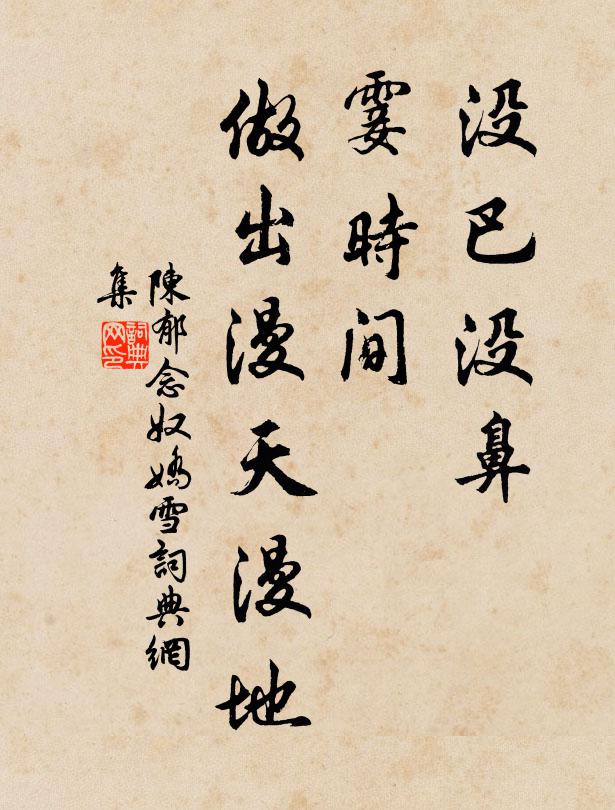 没巴没鼻
霎時間
做出漫天漫地
陳郁念奴嬌雪詞典網
集
詞典網印